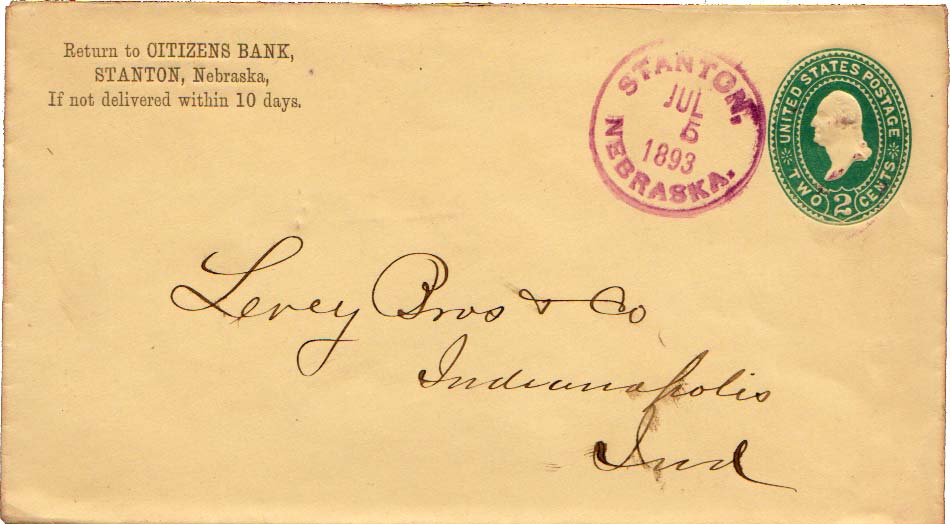 Return to CITIZENS BANK,
STANTON, Nebraska,
If not delivered within 10 days.
STANTON,
JUL
5
1893
NEBRASKA.
UNITED STATES POSTAGE
TWO 2 CENTS
Levey Bros & Co
Indianapolis
Ind